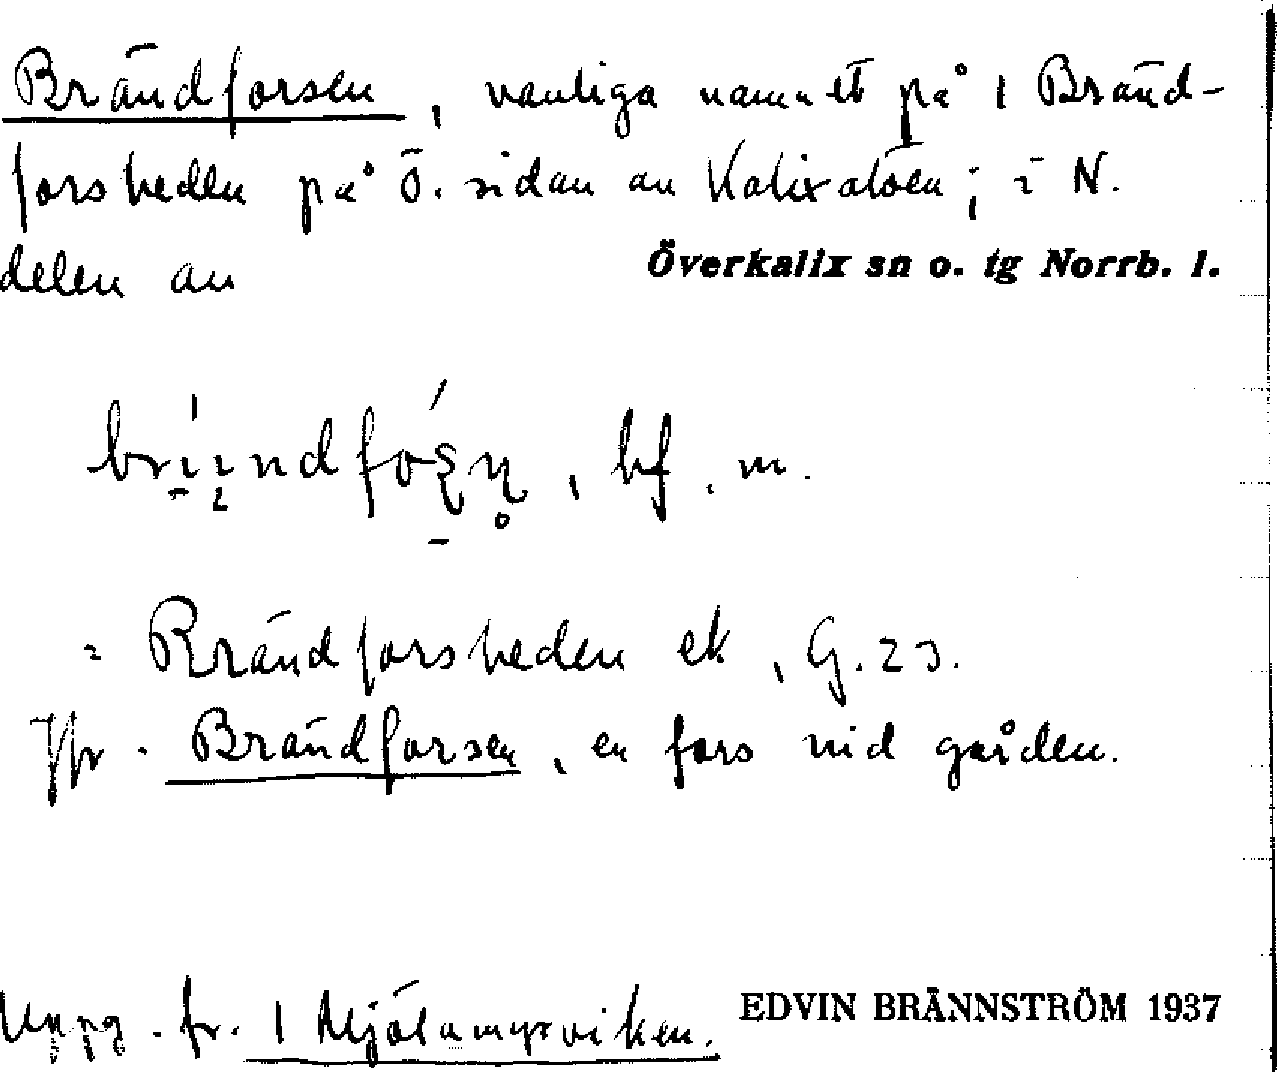 Brändforsen, vanliga namnet på 1 Bränd-
forsheden på Ö. sidan av Kalixälven; i N.
delen av
Överkalix sn o. tg Norrb. l.
bf. m.
= Brändforsheden ek, G. 23.
Jfr. Brändforsen, en fors vid gården.
Uppg. fr. 1 Mjölamyrviken.
EDVIN BRÄNNSTRÖM 1937